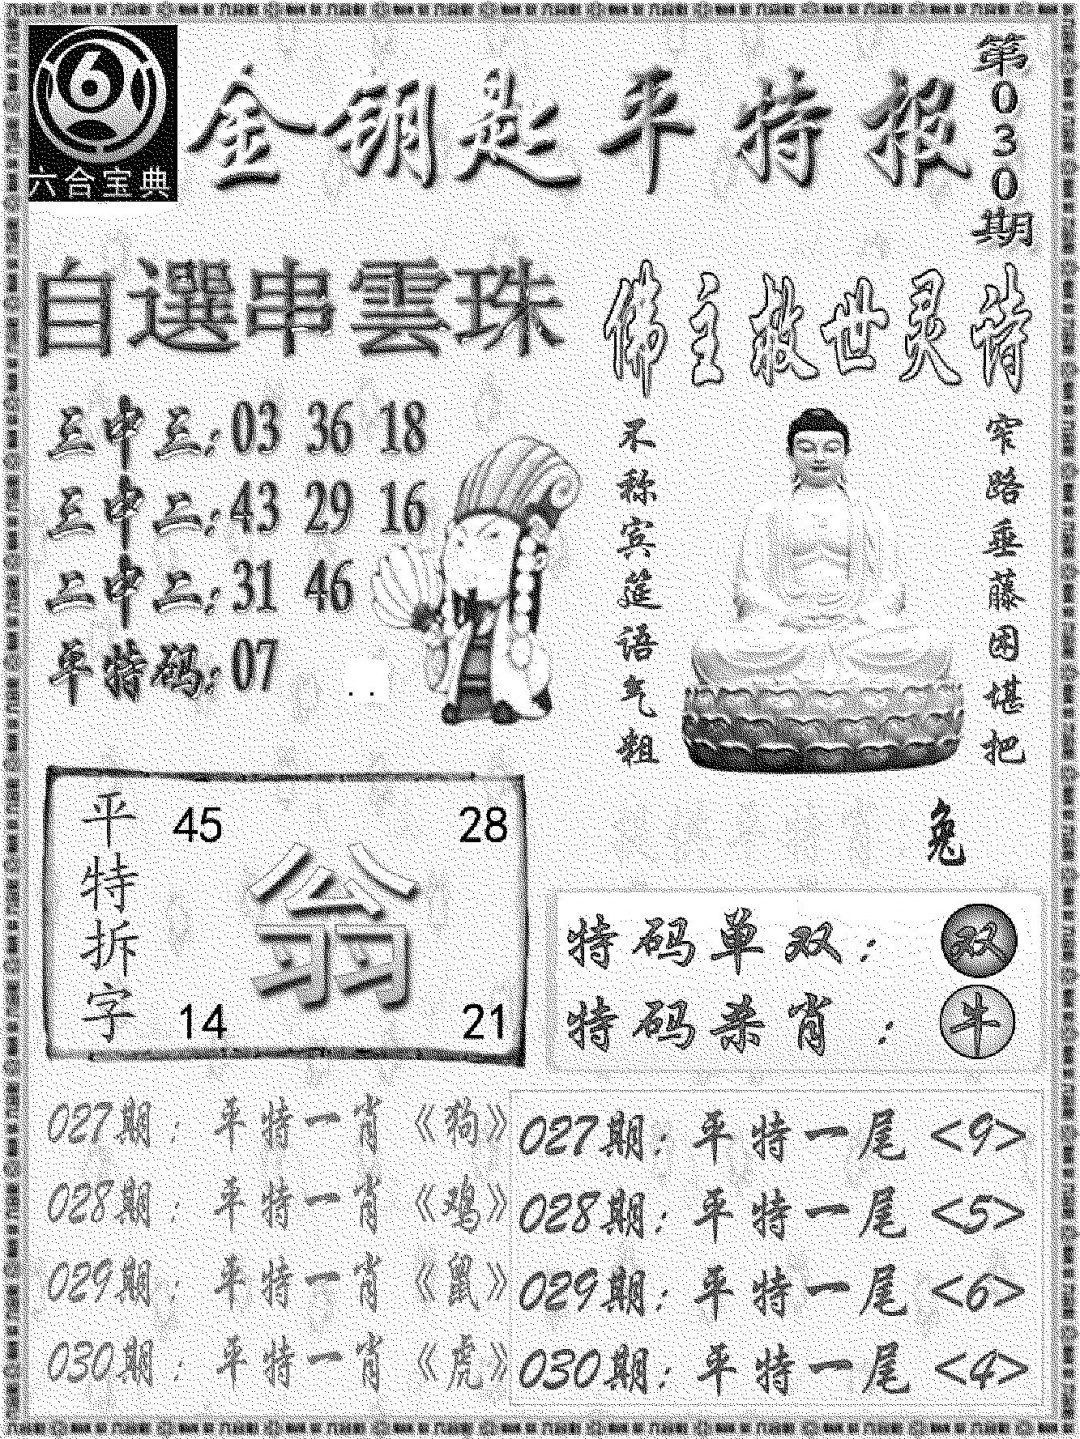 六合宝典
金钥匙平特报
第030期
自選串雲珠
三中三:03 36 18
三中二:43 29 16
二中二:31 46
单特码:07
. .
佛主救世灵诗
窄路垂藤困堪把
不称宾筵语气粗
兔
平特拆字
45 28
翁
14 21
特码单双: 双
特码杀肖: 牛
027期:平特一肖《狗》
028期:平特一肖《鸡》
029期:平特一肖《鼠》
030期:平特一肖《虎》
027期:平特一尾<9>
028期:平特一尾<5>
029期:平特一尾<6>
030期:平特一尾<4>